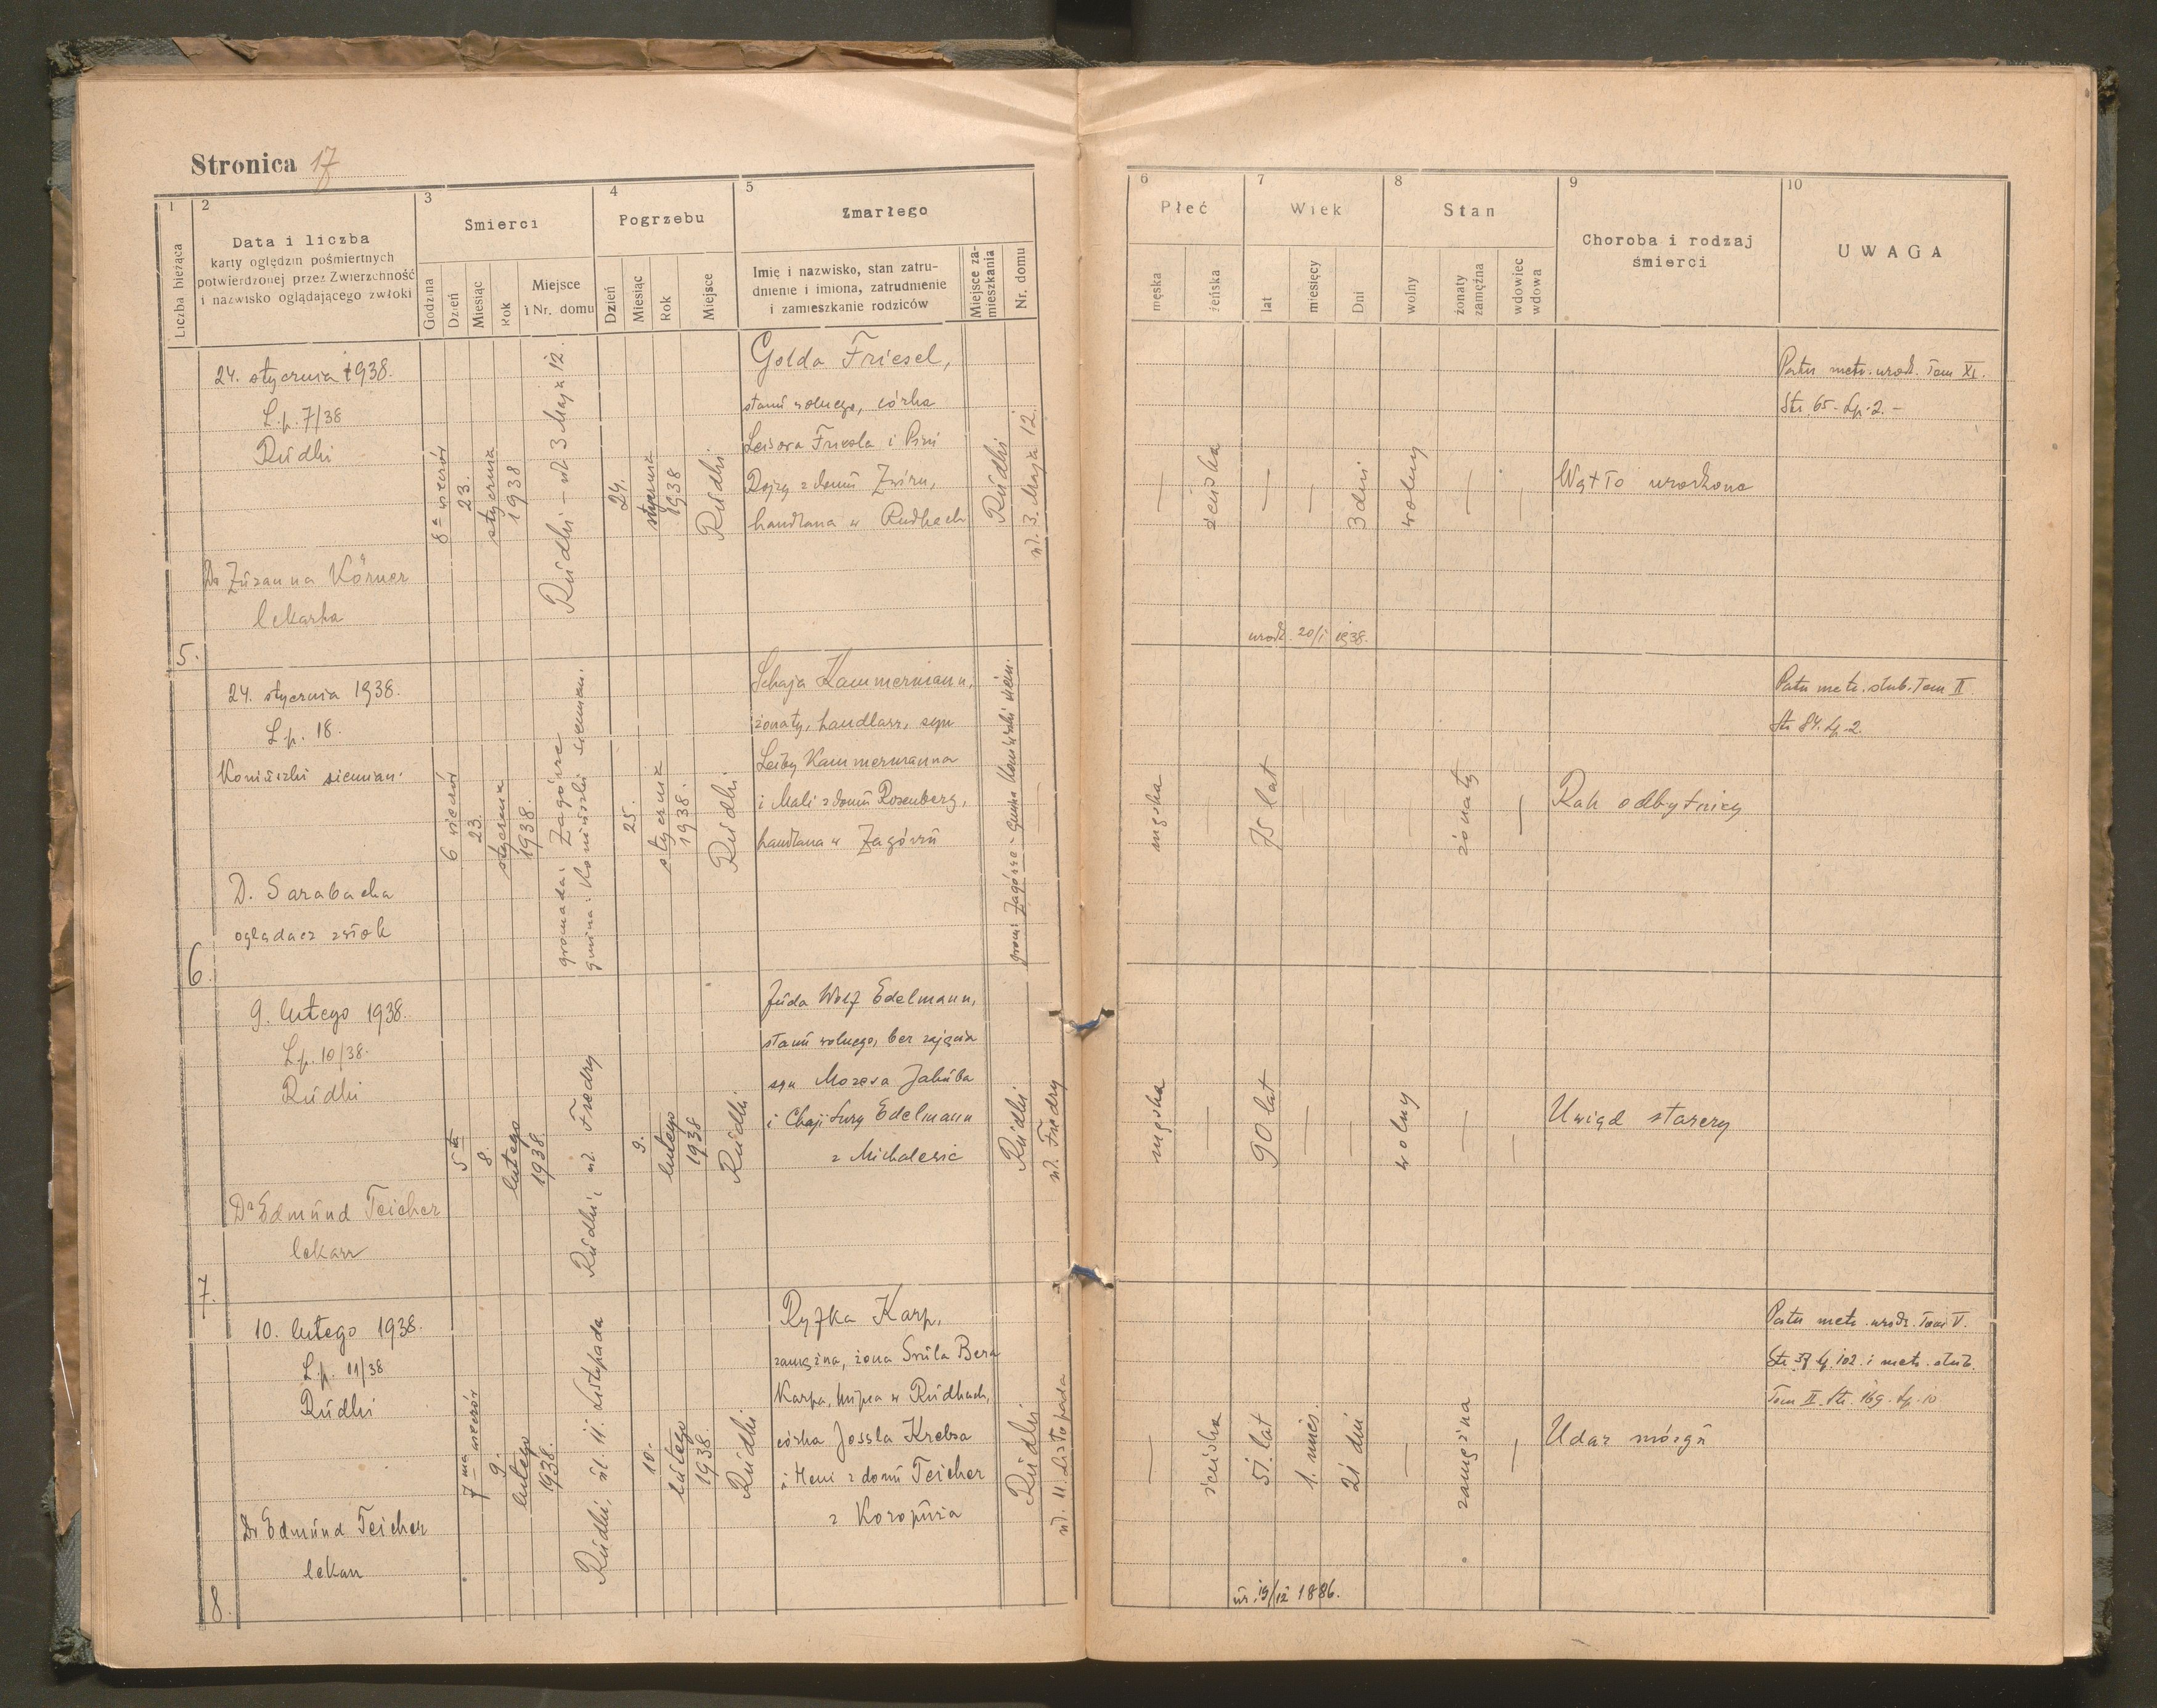 Stronica 17
1
2
3
4
5
6
7
8
9
10
Liczba bieżąca
Data i liczba
karty oględzin pośmiertnych
potwierdzonej przez Zwierzchność
i nazwisko oglądającego zwłoki
Smierci
Godzina
Dzień
Miesiąc
Rok
Miejsce
i Nr. domu
Pogrzebu
Dzień
Miesiąc
Rok
Miejsce
Zmarłego
Imię i nazwisko, stan zatru-
dnienie i imiona, zatrudnienie
i zamieszkanie rodziców
Miejsce za-
mieszkania
Nr. domu
Płeć
męska
żeńska
Wiek
lat
miesięcy
Dni
Stan
wolny
żonaty
zamężna
wdowiec
wdowa
Choroba i rodzaj
śmierci
UWAGA
5.
24. stycznia 1938.
L.p. 7/38
Rudki
Dr Zuzanna Körner
lekarka
8ª wieczór
23.
stycznia
1938
Rudki – ul. 3 Maja 12.
24.
stycznia
1938
Rudki
Golda Friesel,
stanu wolnego, córka
Leisora Friesla i Pini
Dojzy z domu Zwirn,
handlarza w Rudkach
Rudki
ul. 3. Maja 12.
—
żeńska
—
—
3 dni
wolny
—
—
urodz. 20/I 1938.
Wątło urodzona
Patrz metr. urodz. Tom XI.
Str. 65 - Lp. 2. -
6.
24. stycznia 1938.
L.p. 18.
Koniuszki siemian.
D. Sarabacha
oglądacz zwłok
6 wieczór
23.
stycznia
1938.
gromada: Zagórze
gmina: Koniuszki siemian.
25.
stycznia
1938.
Rudki
Schaja Kammermann,
żonaty, handlarz, syn
Leiby Kammermanna
i Mali z domu Rosenberg,
handlarza w Zagórzu
grom: Zagórze - gmina Koniuszki siem.
męska
—
75 lat
—
—
—
żonaty
—
Rak odbytnicy
Patrz metr. ślub. Tom II
Str 84. Lp. 2.
7.
9. lutego 1938.
L.p. 10/38.
Rudki
Dr Edmund Teicher
lekarz
5ta
8.
lutego
1938.
Rudki, ul. Fredry
9.
lutego
1938
Rudki
Juda Wolf Edelmann,
stanu wolnego, bez zajęcia
syn Mozesa Jakuba
i Chaji Sury Edelmann
z Michalewic
Rudki
ul. Fredry
męska
—
90 lat
—
—
wolny
—
—
Uwiąd starczy
8.
10. lutego 1938.
L.p. 11/38
Rudki
Dr Edmund Teicher
lekarz
7ma wieczór
9.
lutego
1938.
Rudki, ul. 11. Listopada
10.
lutego
1938.
Rudki
Ryfka Karp,
zamężna, żona Srula Bera
Karpa, kupca w Rudkach,
córka Jossla Krebsa
i Heni z domu Teicher
z Koropuża
Rudki
ul. 11. Listopada
—
żeńska
51. lat
1. mies.
21 dni
—
zamężna
—
ur. 19/12 1886.
Udar mózgu
Patrz metr. urodz. Tom V.
Str. 37 Lp. 102. i metr. ślub.
Tom II. Str. 169. Lp. 10